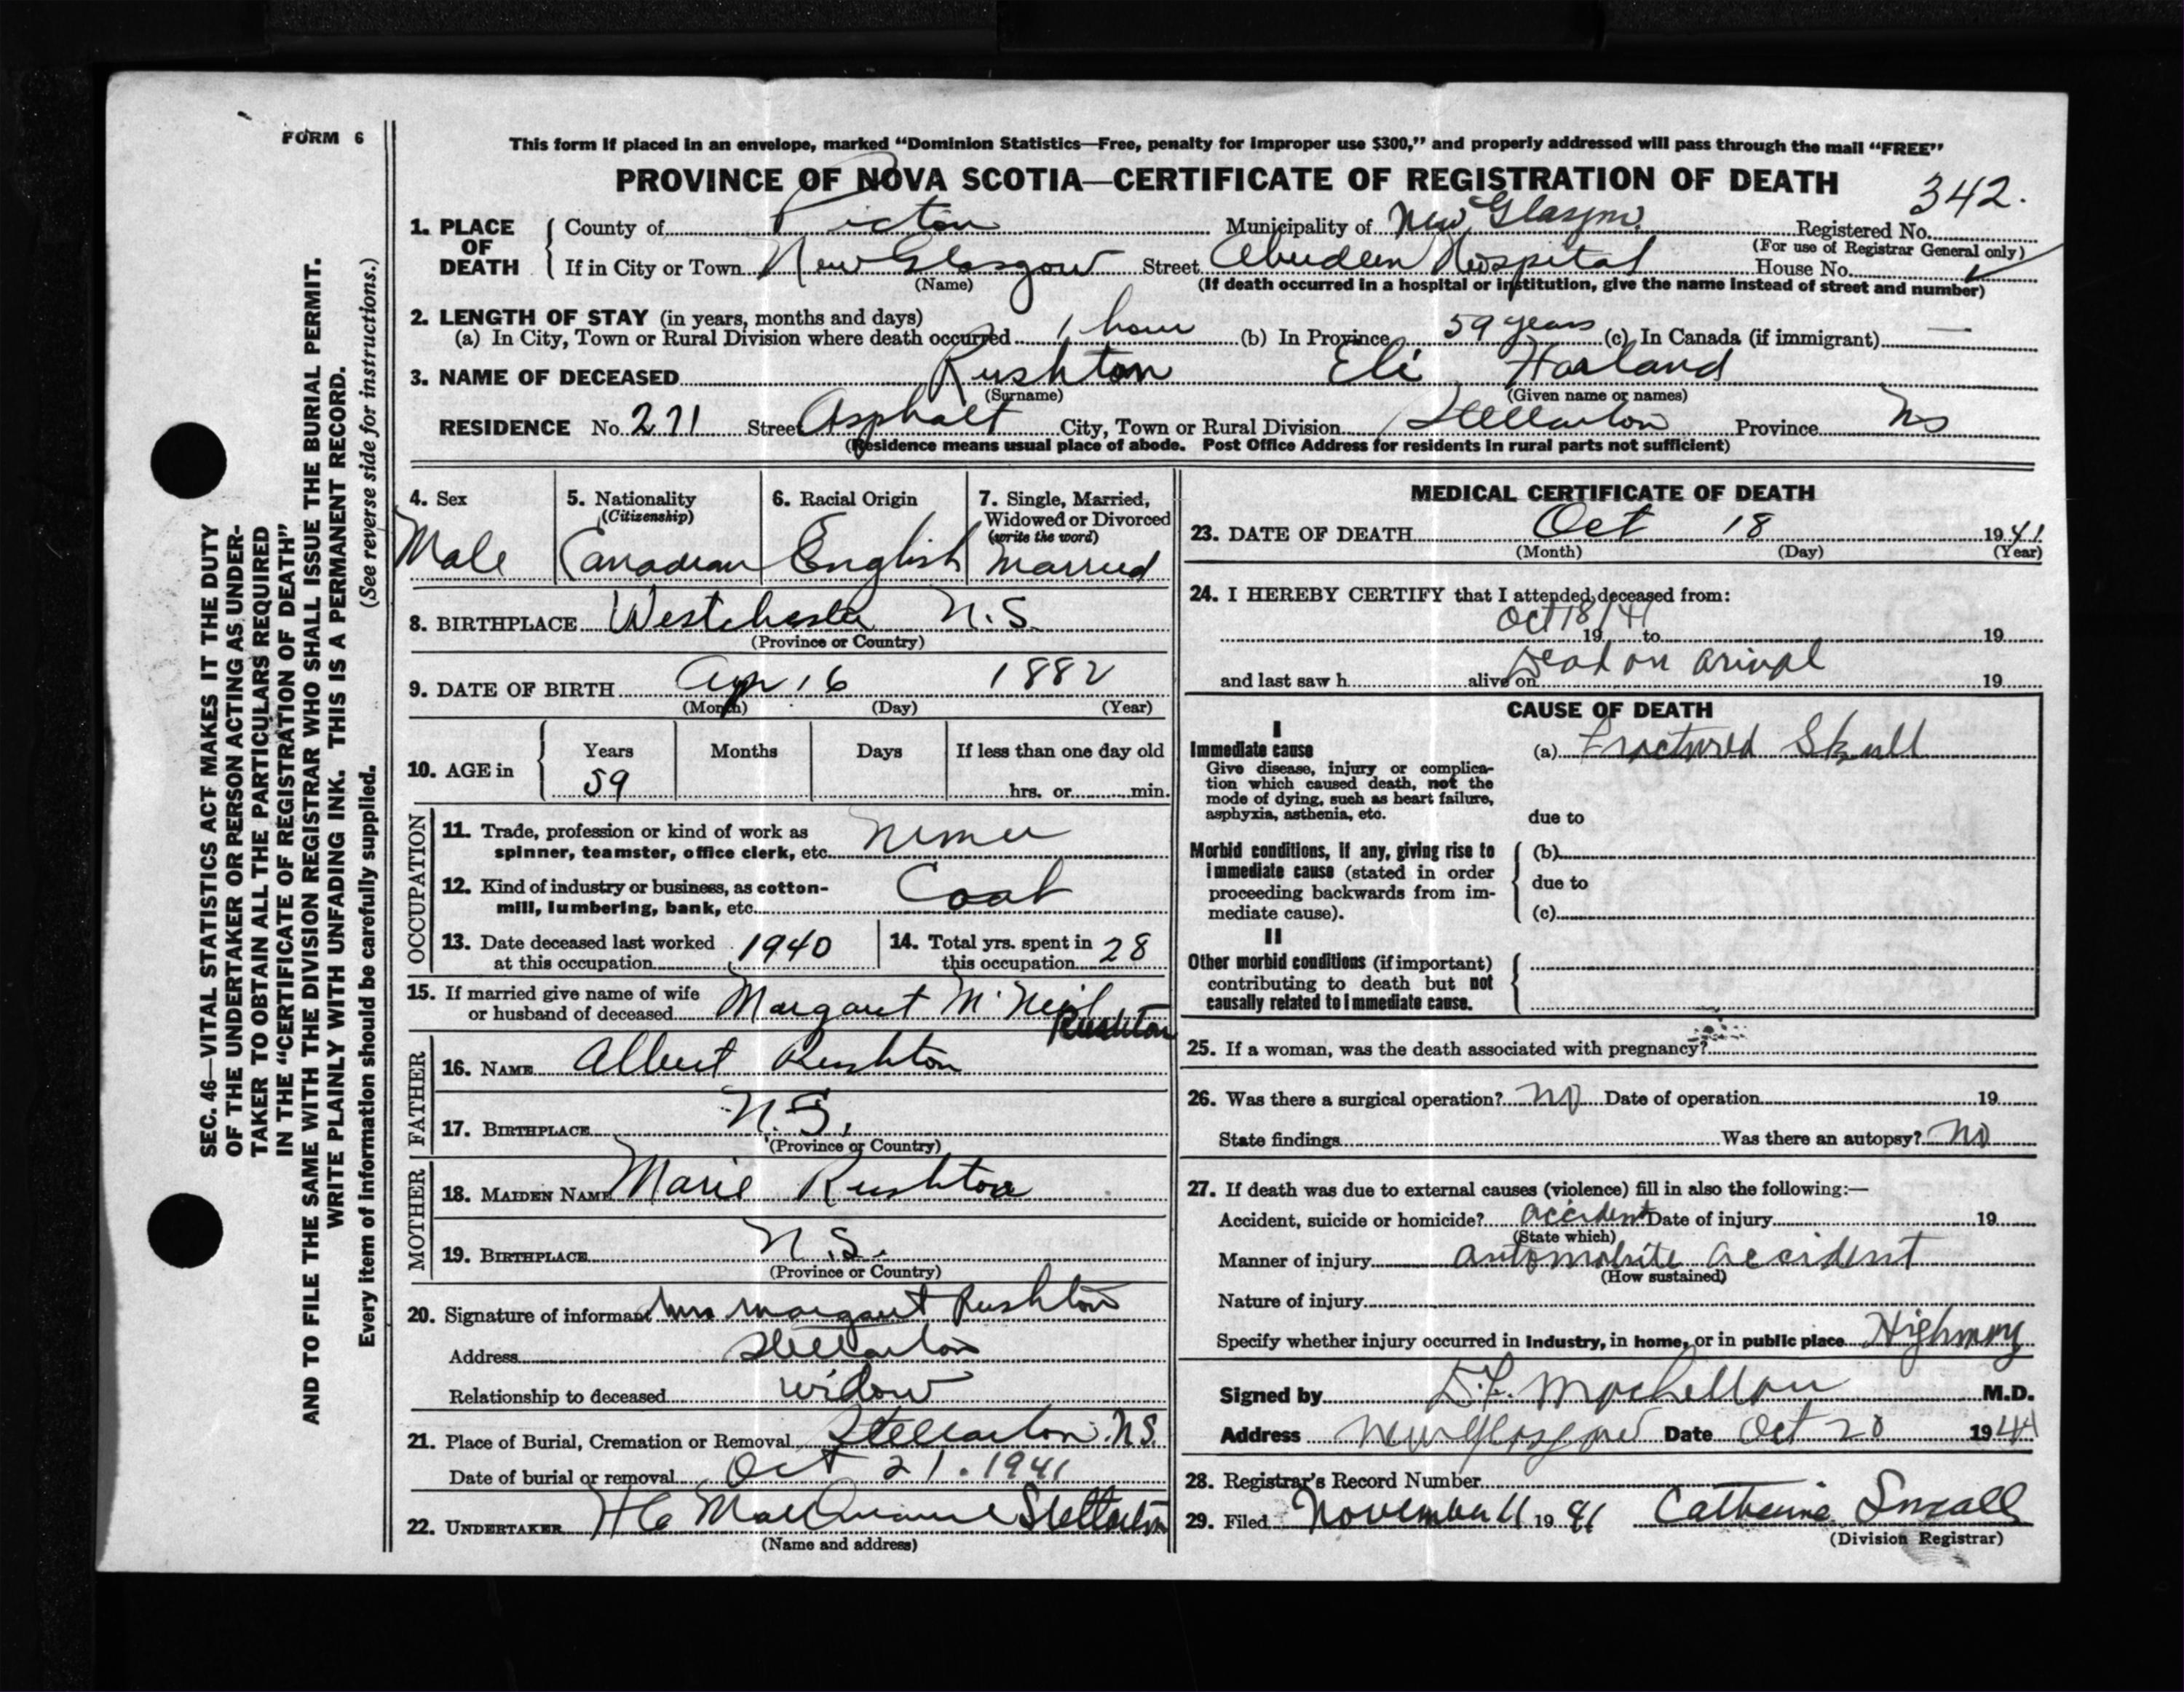 FORM 6
This form if placed in an envelope, marked “Dominion Statistics—Free, penalty for improper use $300,” and properly addressed will pass through the mail “FREE”
PROVINCE OF NOVA SCOTIA—CERTIFICATE OF REGISTRATION OF DEATH
342.
1. PLACE OF DEATH
County of Pictou Municipality of New Glasgow Registered No.
(For use of Registrar General only)
If in City or Town New Glasgow Street Aberdeen Hospital House No.
(Name) (If death occurred in a hospital or institution, give the name instead of street and number)
2. LENGTH OF STAY (in years, months and days)
(a) In City, Town or Rural Division where death occurred 1 hour (b) In Province 59 years (c) In Canada (if immigrant) —
3. NAME OF DECEASED Rushton Eli Harland
(Surname) (Given name or names)
RESIDENCE No. 271 Street Asphalt City, Town or Rural Division Stellarton Province NS
(Residence means usual place of abode. Post Office Address for residents in rural parts not sufficient)
4. Sex
Male
5. Nationality
(Citizenship)
Canadian
6. Racial Origin
English
7. Single, Married,
Widowed or Divorced
(write the word)
Married
8. BIRTHPLACE Westchester N.S.
(Province or Country)
9. DATE OF BIRTH Apr 16 1882
(Month) (Day) (Year)
10. AGE in
Years Months Days If less than one day old
59 hrs. or min.
OCCUPATION
11. Trade, profession or kind of work as
spinner, teamster, office clerk, etc. Miner
12. Kind of industry or business, as cotton-
mill, lumbering, bank, etc. Coal
13. Date deceased last worked
at this occupation 1940
14. Total yrs. spent in
this occupation 28
15. If married give name of wife
or husband of deceased Margaret McNeil
Rushton
FATHER
16. NAME Albert Rushton
17. BIRTHPLACE N.S.
(Province or Country)
MOTHER
18. MAIDEN NAME Marie Rushton
19. BIRTHPLACE N.S.
(Province or Country)
20. Signature of informant Mrs Margaret Rushton
Address Stellarton
Relationship to deceased widow
21. Place of Burial, Cremation or Removal Stellarton. N.S.
Date of burial or removal Oct 21. 1941
22. UNDERTAKER H C Stellarton
(Name and address)
MEDICAL CERTIFICATE OF DEATH
23. DATE OF DEATH Oct 18 1941
(Month) (Day) (Year)
24. I HEREBY CERTIFY that I attended deceased from:
Oct 18/41
19 to 19
and last saw h alive on Dead on arival 19
CAUSE OF DEATH
I
Immediate cause
Give disease, injury or complica-
tion which caused death, not the
mode of dying, such as heart failure,
asphyxia, asthenia, etc.
(a) Fractured Skull
due to
Morbid conditions, if any, giving rise to
immediate cause (stated in order
proceeding backwards from im-
mediate cause).
(b)
due to
(c)
II
Other morbid conditions (if important)
contributing to death but not
causally related to immediate cause.
25. If a woman, was the death associated with pregnancy?
26. Was there a surgical operation? No Date of operation 19
State findings Was there an autopsy? No
27. If death was due to external causes (violence) fill in also the following:—
Accident, suicide or homicide? accident Date of injury 19
(State which)
Manner of injury automobile accident
(How sustained)
Nature of injury
Specify whether injury occurred in industry, in home, or in public place Highway
Signed by M.D.
Address New Glasgow Date Oct 20 1941
28. Registrar's Record Number
29. Filed November 11 1941 Catherine Small
(Division Registrar)
SEC. 46—VITAL STATISTICS ACT MAKES IT THE DUTY
OF THE UNDERTAKER OR PERSON ACTING AS UNDER-
TAKER TO OBTAIN ALL THE PARTICULARS REQUIRED
IN THE “CERTIFICATE OF REGISTRATION OF DEATH”
AND TO FILE THE SAME WITH THE DIVISION REGISTRAR WHO SHALL ISSUE THE BURIAL PERMIT.
WRITE PLAINLY WITH UNFADING INK. THIS IS A PERMANENT RECORD.
Every item of information should be carefully supplied. (See reverse side for instructions.)